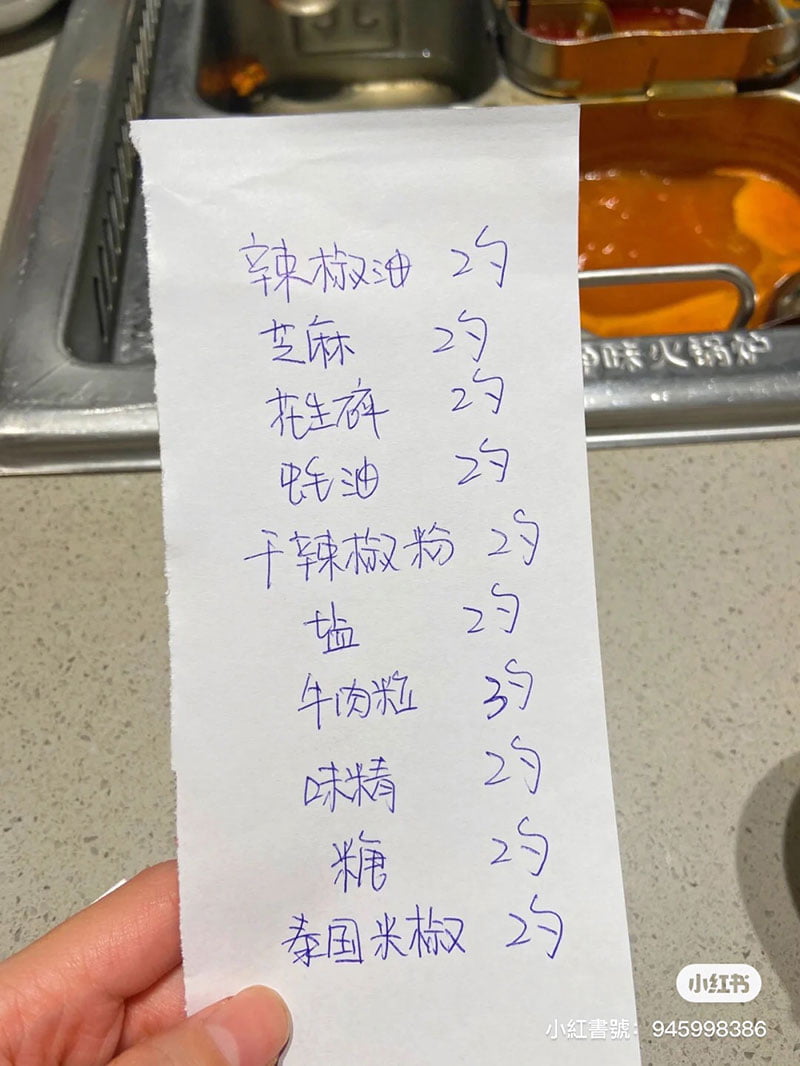 味火锅炉
辣椒油 2勺
芝麻 2勺
花生碎 2勺
蚝油 2勺
干辣椒粉 2勺
盐 2勺
牛肉粒 3勺
味精 2勺
糖 2勺
泰国米椒 2勺
小红书
小紅書號：945998386